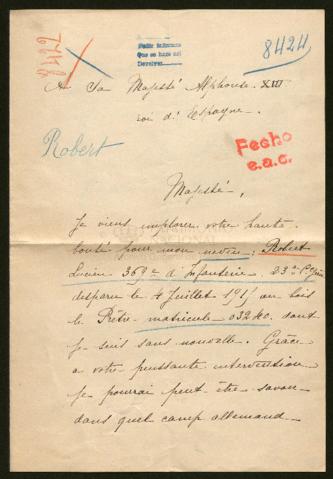 8424
A Sa Majesté Alphonse XIII
roi d'Espagne.
Robert
Fecho
e.a.c.
Majesté,
Je viens implorer votre haute
bonté pour mon neveu: Robert
Lucien 369e d'Infanterie, 23e Cie
disparu le 4 Juillet 191 au bois
le Prêtre matricule 03240. dont
je suis sans nouvelle. Grâce
a votre puissante intervention
je pourrai peut être savoir
dans quel camp allemand